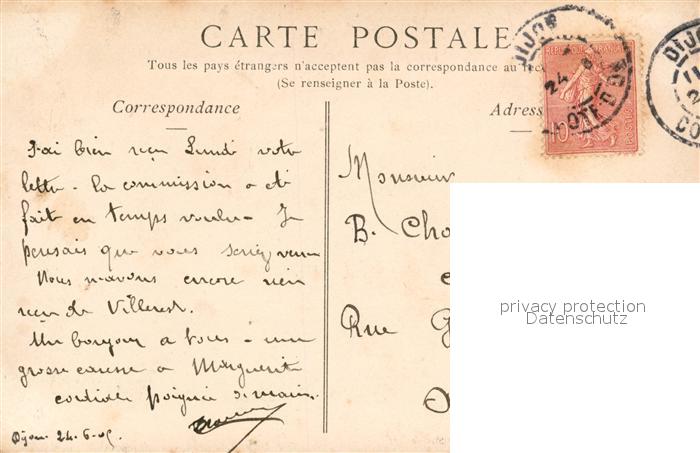 CARTE POSTALE
Tous les pays étrangers n'acceptent pas la correspondance au
(Se renseigner à la Poste).
Correspondance
Adress
DIJON
24
COTE D'OR
10
POSTE
DIJ
CO
J'ai bien reçu Lundi votre
lettre - la commission a été
fait en temps voulu - Je
pensais que vous seriez venu
Nous n'avons encore rien
reçu de Villerest.
Un bonjour a tous - une
grosse caresse a Marguerite
cordiale poignée de main.
Dijon 24-6-05
Monsieur
B. Cho
Rue G
privacy protection
Datenschutz